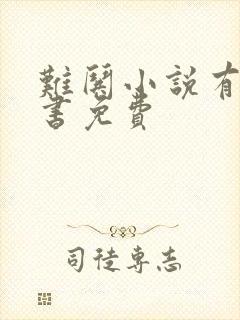 難闋小說有
書免費
司徒專志